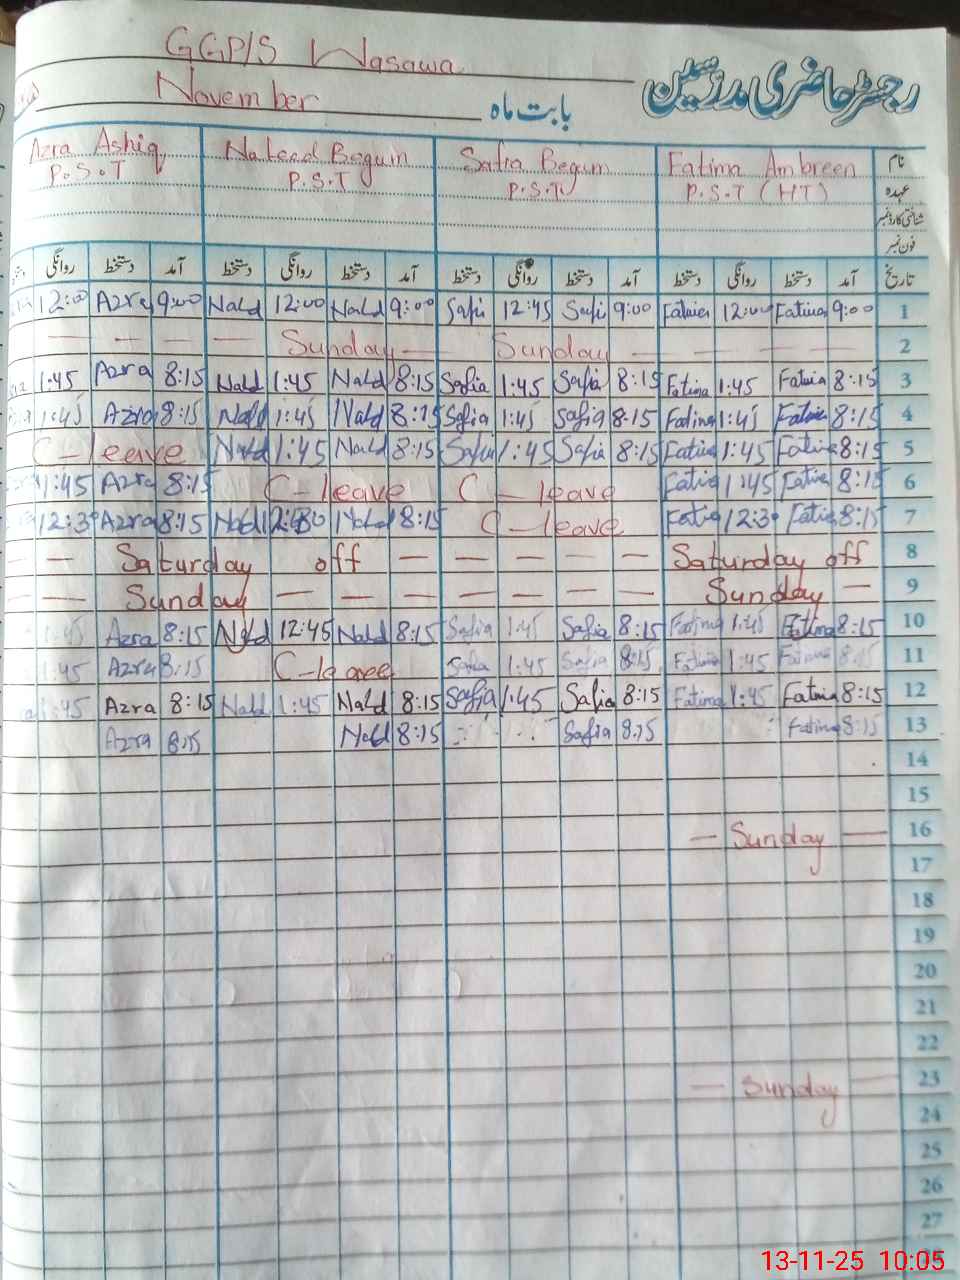 GGP/S Wasawa
رجسٹر حاضری مدرسین
November بابت ماہ
Azra Ashiq Begum Safia Begum Fatima Ambreen نام
P.S.T P.S.T P.S.T P.S.T (HT) عہدہ
شناختی کارڈ نمبر
فون نمبر
روانگی دستخط آمد دستخط روانگی دستخط آمد دستخط روانگی دستخط آمد دستخط روانگی دستخط آمد تاریخ
12:00 Azra 9:00 Nald 12:00 Nald 9:00 Safi 12:45 Safi 9:00 Fatima 12:00 Fatima 9:00 1
— — — — Sunday — Sunday — — — — 2
1:45 Azra 8:15 Nald 1:45 Nald 8:15 Safia 1:45 Safia 8:15 Fatima 1:45 Fatima 8:15 3
1:45 Azra 8:15 Nald 1:45 Nald 8:15 Safia 1:45 Safia 8:15 Fatima 1:45 Fatima 8:15 4
C-leave Nald 1:45 Nald 8:15 Safia 1:45 Safia 8:15 Fatima 1:45 Fatima 8:15 5
1:45 Azra 8:15 C-leave C-leave Fatia 1:45 Fatia 8:15 6
12:30 Azra 8:15 Nald Nald 8:15 C-leave Fatia 12:30 Fatia 8:15 7
— — Saturday off — — — — — Saturday off 8
— — Sunday — — — — — — — Sunday — 9
1:45 Azra 8:15 Nald 12:45 Nald 8:15 Safia 1:45 Safia 8:15 Fatima 1:45 Fatima 8:15 10
1:45 Azra 8:15 C-leave Safia 1:45 Safia 8:15 Fatima 1:45 Fatima 8:15 11
1:45 Azra 8:15 Nald 1:45 Nald 8:15 Safia 1:45 Safia 8:15 Fatima 1:45 Fatima 8:15 12
Azra 8:15 Nald 8:15 Safia 8:15 Fatima 8:15 13
14
15
— Sunday — 16
17
18
19
20
21
22
— Sunday — 23
24
25
26
27
13-11-25 10:05